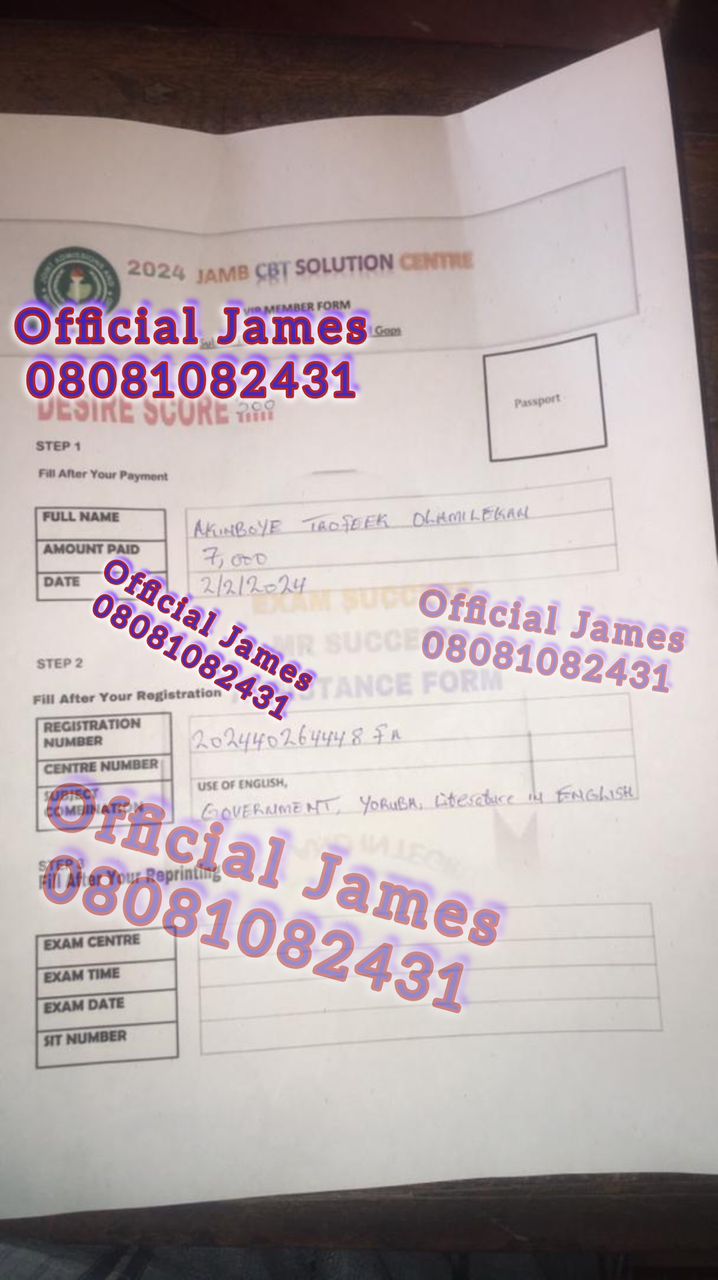 2024 JAMB CBT SOLUTION CENTRE
VIP MEMBER FORM
Gaps
Official James
08081082431
DESIRE SCORE 200
Passport
STEP 1
Fill After Your Payment
FULL NAME AKINBOYE TAOFEEK OLAMILEKAN
AMOUNT PAID 7,000
DATE 2/2/2024
EXAM SUCCESS
Official James
08081082431
Official James
08081082431
SUCCE
STANCE FORM
STEP 2
Fill After Your Registration
REGISTRATION NUMBER 202440264448 FA
CENTRE NUMBER
SUBJECT COMBINATION USE OF ENGLISH,
GOVERNMENT, YORUBA, Literature in ENGLISH
Official James
08081082431
STEP 3
Fill After Your Reprinting
EXAM CENTRE
EXAM TIME
EXAM DATE
SIT NUMBER